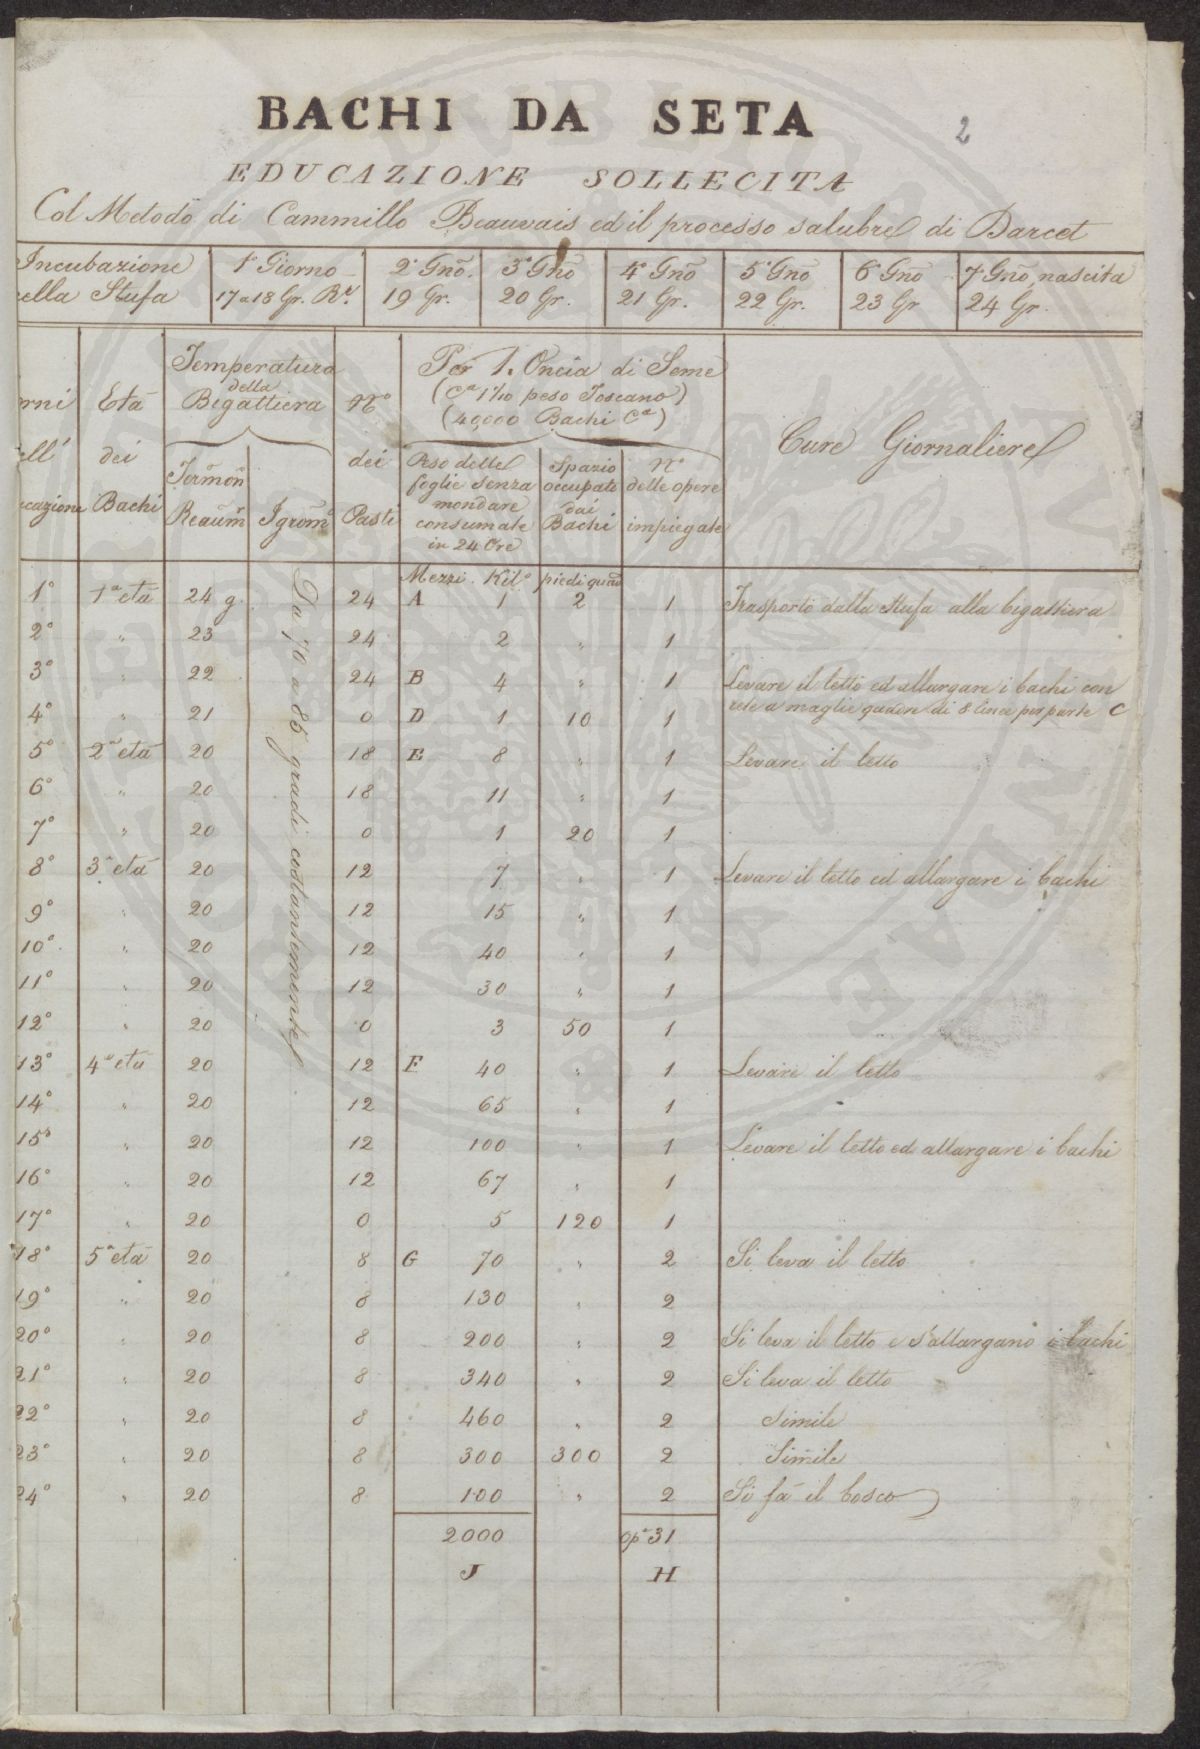 2
BACHI DA SETA
EDUCAZIONE SOLLECITA
Col Metodo di Cammillo Beauvais ed il processo salubre di Darcet
Incubazione 1° Giorno 2° Gno. 3° Gno 4° Gno 5° Gno 6° Gno 7 Gno, nascita
ella Stufa 17 a 18 Gr. Rr. 19 Gr. 20 Gr. 21 Gr. 22 Gr. 23 Gr 24 Gr.
rni Età Temperatura della Bigattiera N° Per 1. Oncia di Seme
(Ca 1 1/10 peso Toscano)
(40,000 Bachi Ca)
Cure Giornaliere
ell' dei dei
cazione Bachi Termon Reaum Igrom Pasti
Peso delle foglie senza mondare consumate in 24 Ore
Spazio occupato dai Bachi
N° delle opere impiegate
Mezzi Kilo piedi quad
Da 70 a 85 gradi costantemente
1° 1a età 24 g. 24 A 1 2 1 Trasporto dalla stufa alla bigattiera
2° " 23 24 2 " 1
3° " 22 24 B 4 " 1 Levare il letto ed allargare i bachi con
4° " 21 0 D 1 10 1 rete a maglie quadre di 8 linee per parte C
5° 2a età 20 18 E 8 " 1 Levare il letto
6° " 20 18 11 " 1
7° " 20 0 1 20 1
8° 3a età 20 12 7 " 1 Levare il letto ed allargare i bachi
9° " 20 12 15 " 1
10° " 20 12 40 " 1
11° " 20 12 30 " 1
12° " 20 0 3 50 1
13° 4a età 20 12 F 40 " 1 Levare il letto
14° " 20 12 65 " 1
15° " 20 12 100 " 1 Levare il letto ed allargare i bachi
16° " 20 12 67 " 1
17° " 20 0 5 120 1
18° 5a età 20 8 G 70 " 2 Si leva il letto
19° " 20 8 130 " 2
20° " 20 8 200 " 2 Si leva il letto e s'allargano i bachi
21° " 20 8 340 " 2 Si leva il letto
22° " 20 8 460 " 2 Simile
23° " 20 8 300 300 2 Simile
24° " 20 8 100 " 2 Si fà il bosco
2000 op. 31
J H